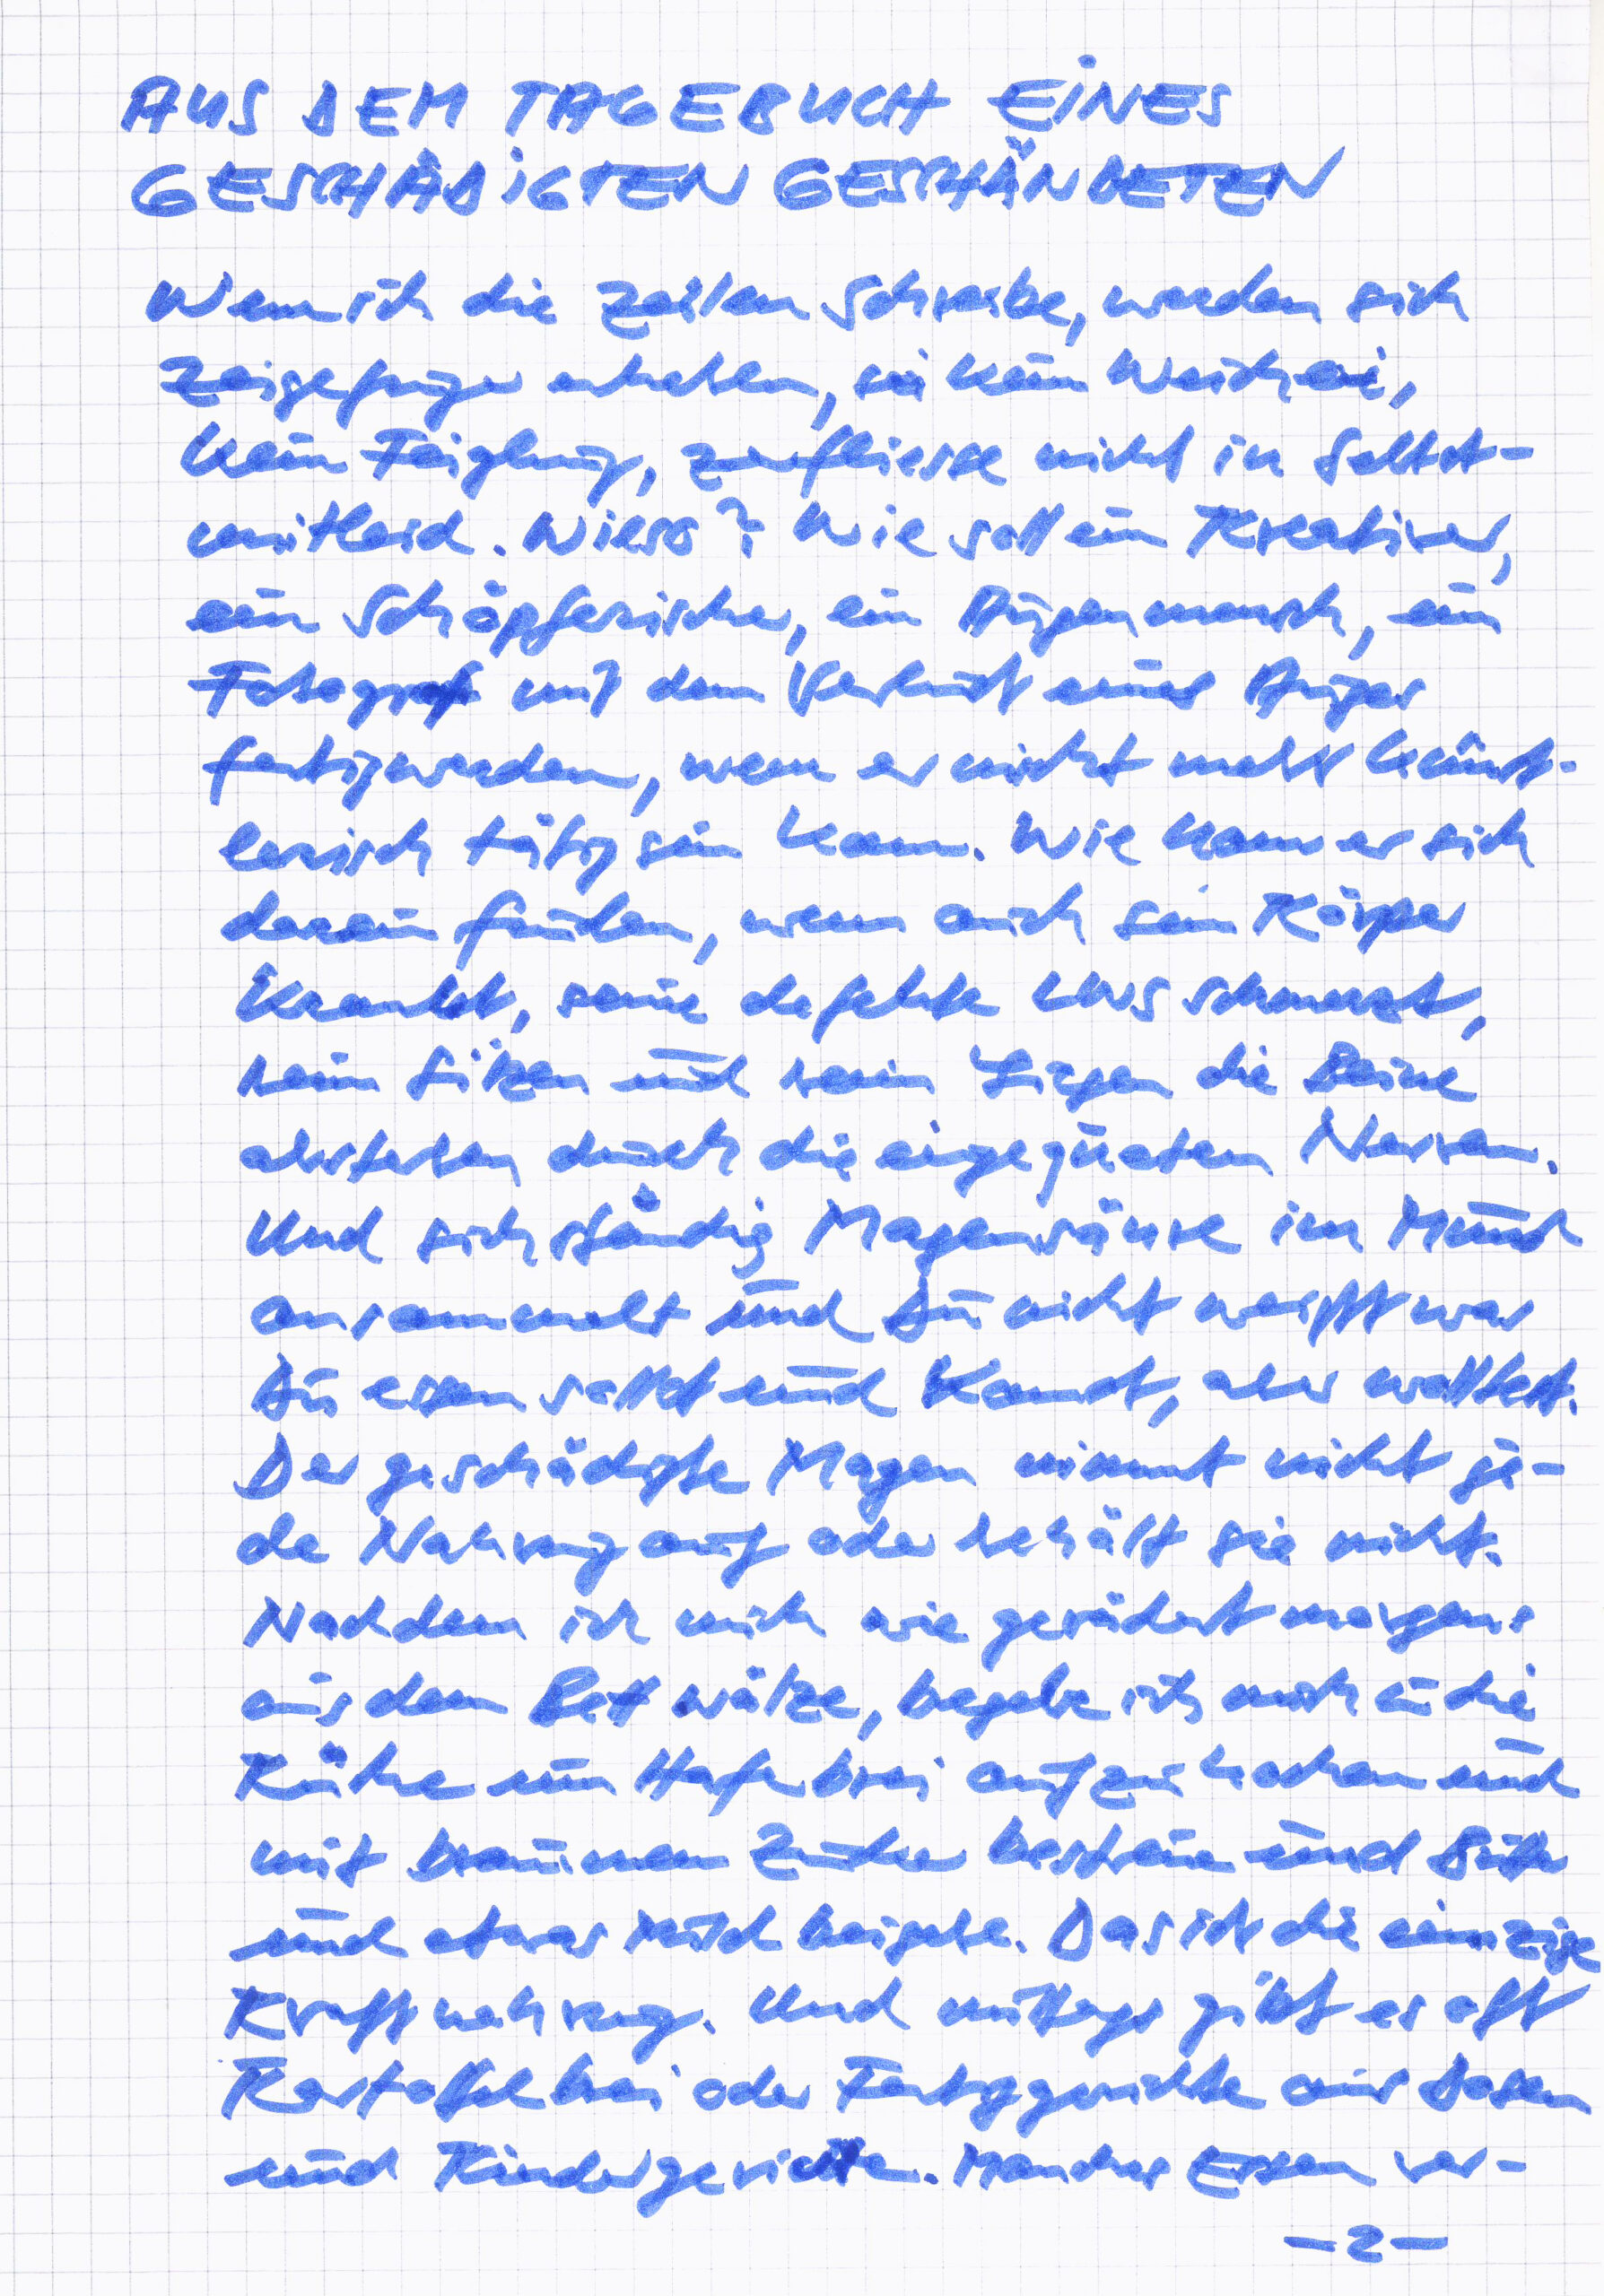 AUS DEM TAGEBUCH EINES
GESCHÄDIGTEN GESCHÄNDETEN
Wenn ich die Zeilen schreibe, werden sich
Zeigefinger erheben, sei kein Weichei,
kein Feigling, zerfliesse nicht in Selbst-
mitleid. Wieso? Wie soll ein Kreativer,
ein Schöpferischer, ein Augenmensch, ein
Fotograf mit dem Verlust eines Auges
fertigwerden, wenn er nicht mehr künst-
lerisch tätig sein kann. Wie kann er sich
darein finden, wenn auch sein Körper
krankt, seine defekte LWS schmerzt,
beim Sitzen und beim Liegen die Beine
absterben durch die eingequeten Nerven.
Und sich ständig Magensäure im Mund
ansammelt und Du nicht weißt was
Du essen sollst und kannst, aber wolltest.
Der geschädigte Magen nimmt nicht je-
de Nahrung auf oder behält sie nicht.
Nachdem ich mich wie gerädert morgens
aus dem Bett wälze, begebe ich mich in die
Küche um Haferbrei aufzukochen und
mit braunem Zucker bestreue und Butter
und etwas Milch beigebe. Das ist die einzige
Kraftnahrung. Und mittags gibt es oft
Kartoffelbrei oder Fertiggerichte aus Dosen
und Kindergerichte. Manches Essen ver-
-2-